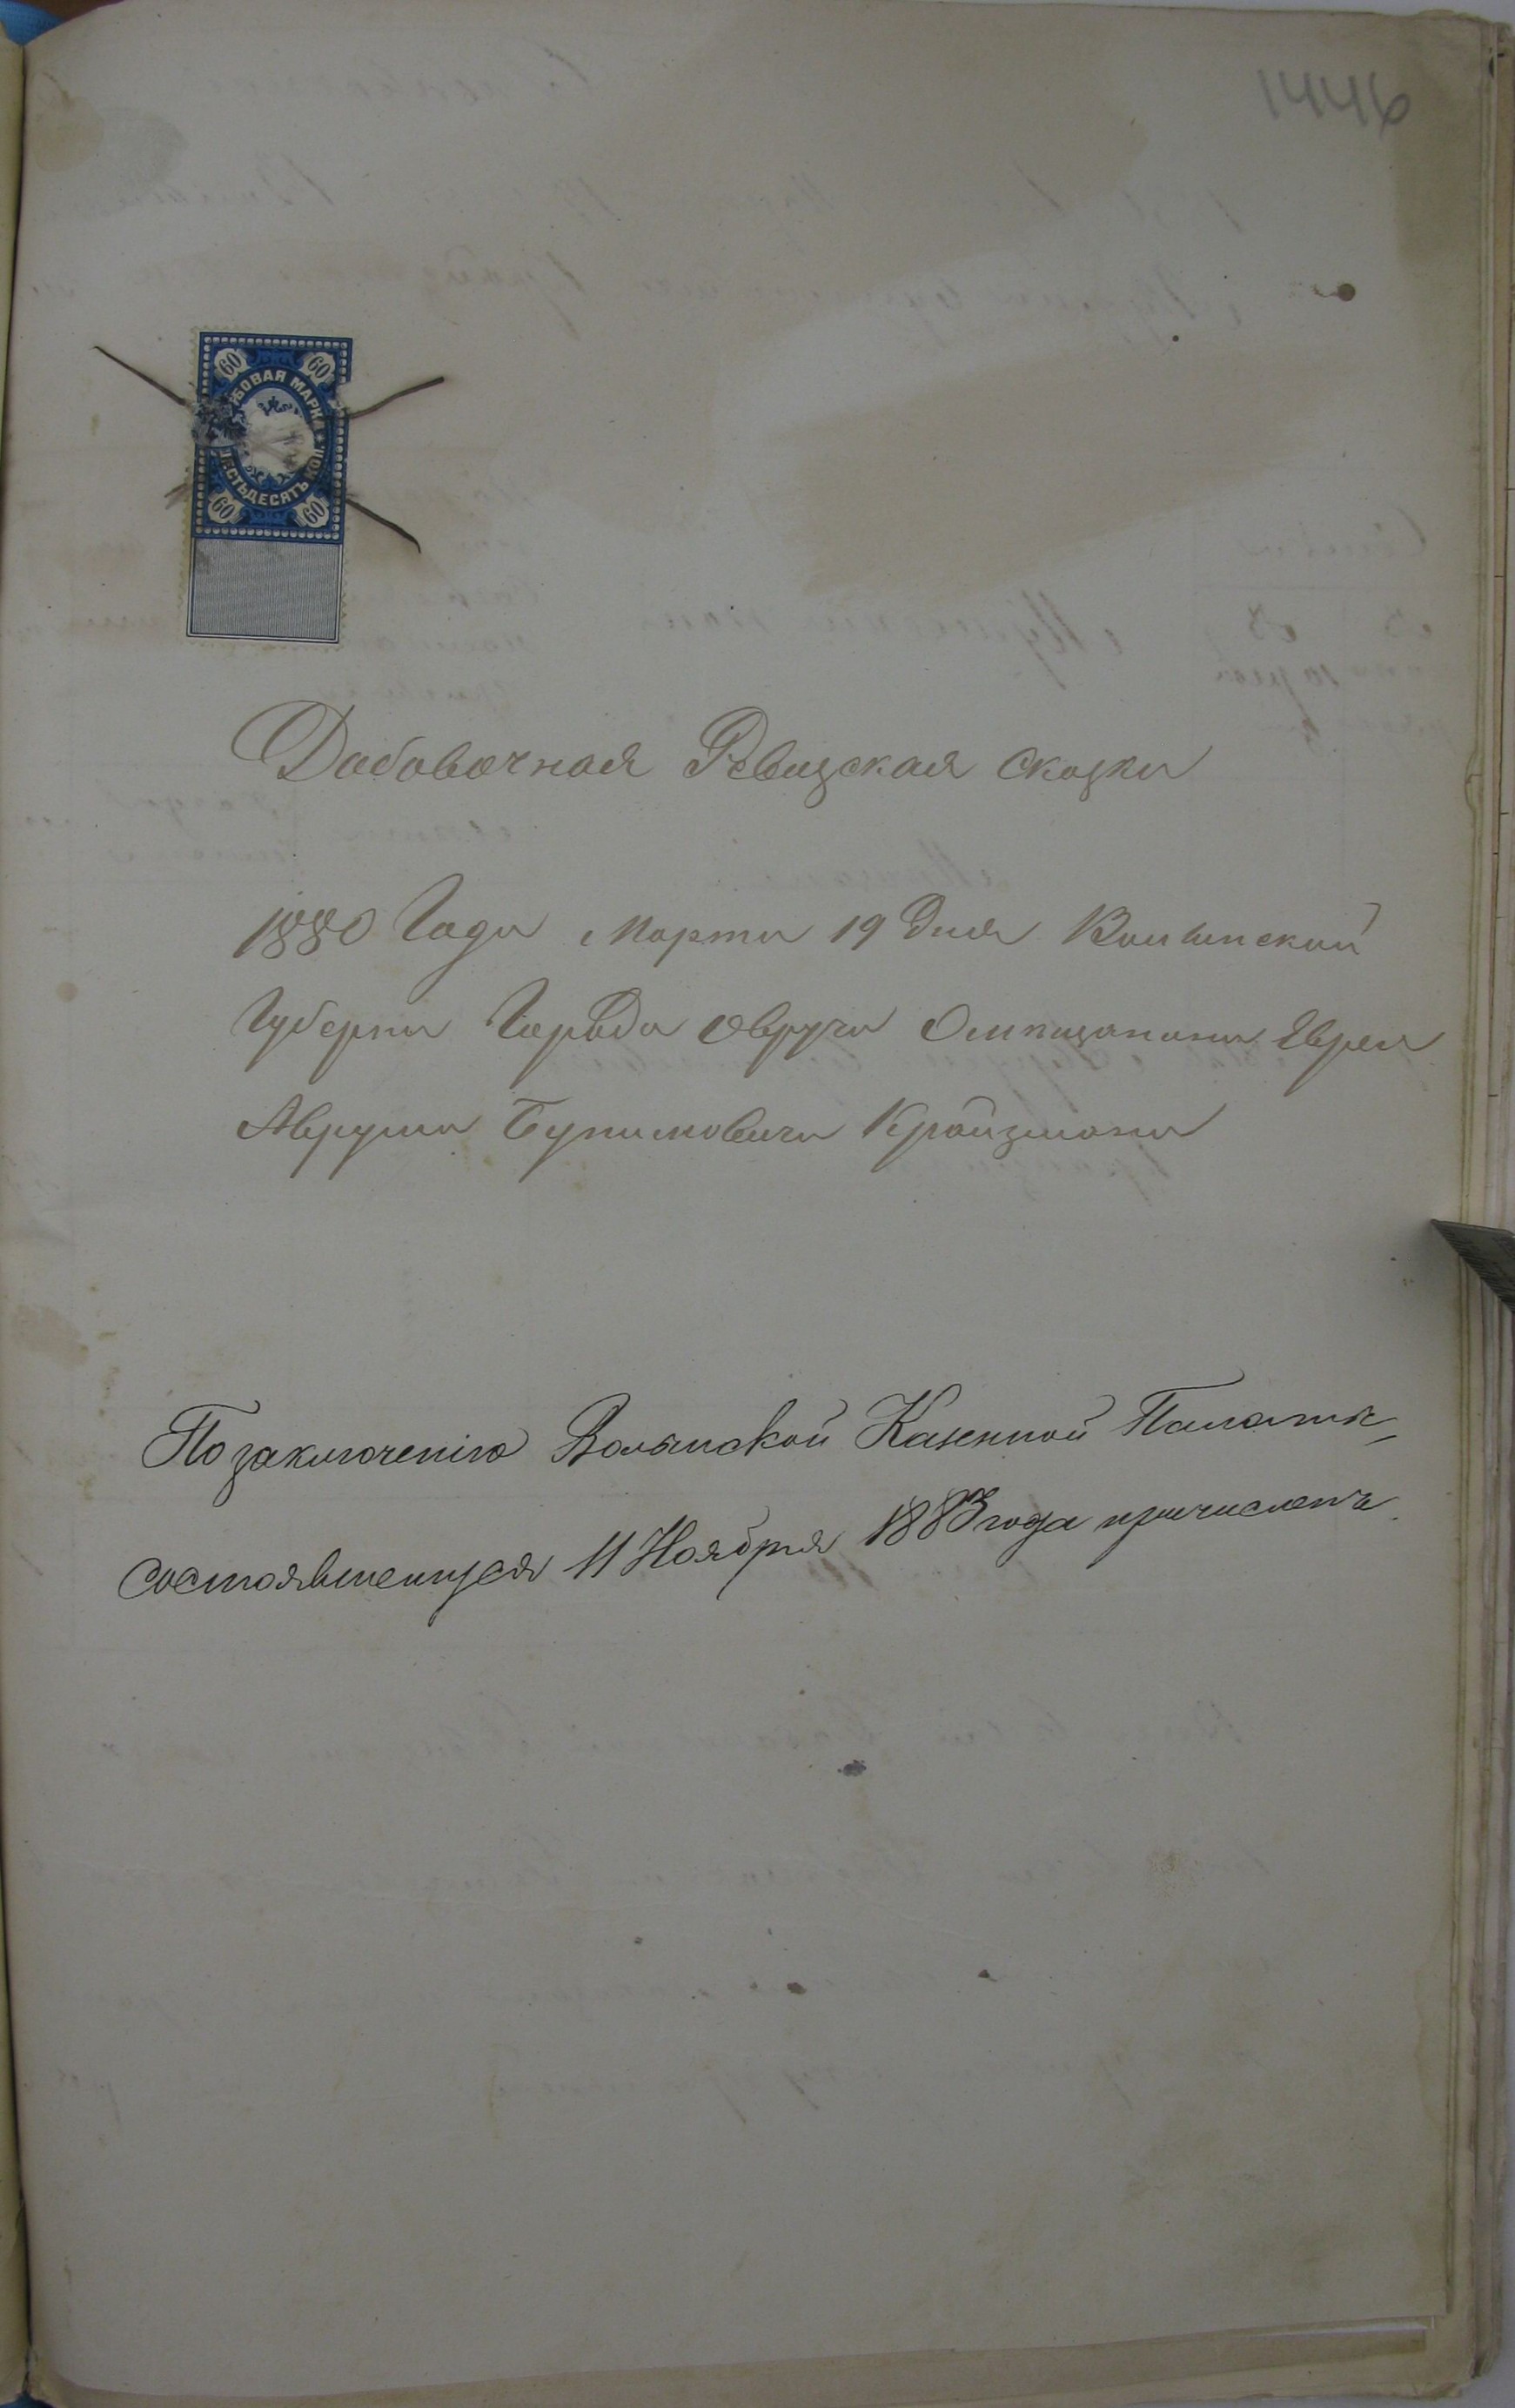 1446
60 60
ГЕРБОВАЯ МАРКА
ШЕСТЬДЕСЯТЪ КОП.
60 60
Добовочная Ревизская сказки
1880 Года Марта 19 дня Волынской
Губерни Города Овруча Еврея
Аврума Бунимовича Крайзмана
По заключенію Волынской Казенной Палаты,
состоявшемуся 11 Ноября 1883 года причисленъ